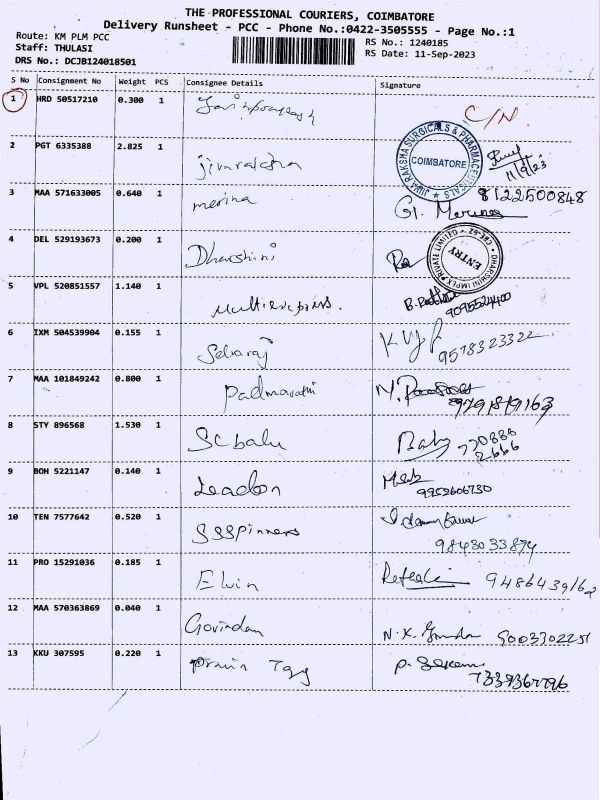 THE PROFESSIONAL COURIERS, COIMBATORE
Delivery Runsheet - PCC - Phone No.:0422-3505555 - Page No.:1
Route: KM PLM PCC
Staff: THULASI
DRS No.: DCJB124018501
RS No.: 1240185
RS Date: 11-Sep-2023
S No Consignment No Weight PCS Consignee Details Signature
1 HRD 50517210 0.300 1 C/N
2 PGT 6335388 2.825 1 jivaraksha 11/9/23
JIWA RAKSHA SURGICALS & PHARMACEUTICALS
COIMBATORE
3 MAA 571633005 0.640 1 merina 8122500848
4 DEL 529193673 0.200 1 Dharshini
DHARSHINI IMPEX PRIVATE LIMITED
ENTRY
5 VPL 520851557 1.140 1 9095524400
6 IXM 504539904 0.155 1 Selvaraj 9578323322
7 MAA 101849242 0.800 1 Padmavathi
8 STY 896568 1.530 1 SC balu Baby
9 BOH 5221147 0.140 1 Leadon 9952606730
10 TEN 7577642 0.520 1 SSSpinners 9843033874
11 PRO 15291036 0.185 1 Elvin 9486439162
12 MAA 570363869 0.040 1 Govindan 9003302251
13 KKU 307595 0.220 1 7339367796